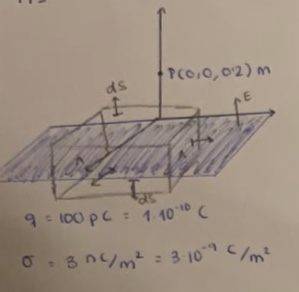 dS
P(0,0,0'2) m
E
dS
q = 100 pC = 1·10⁻¹⁰ C
σ = 3 nC/m² = 3·10⁻⁹ C/m²